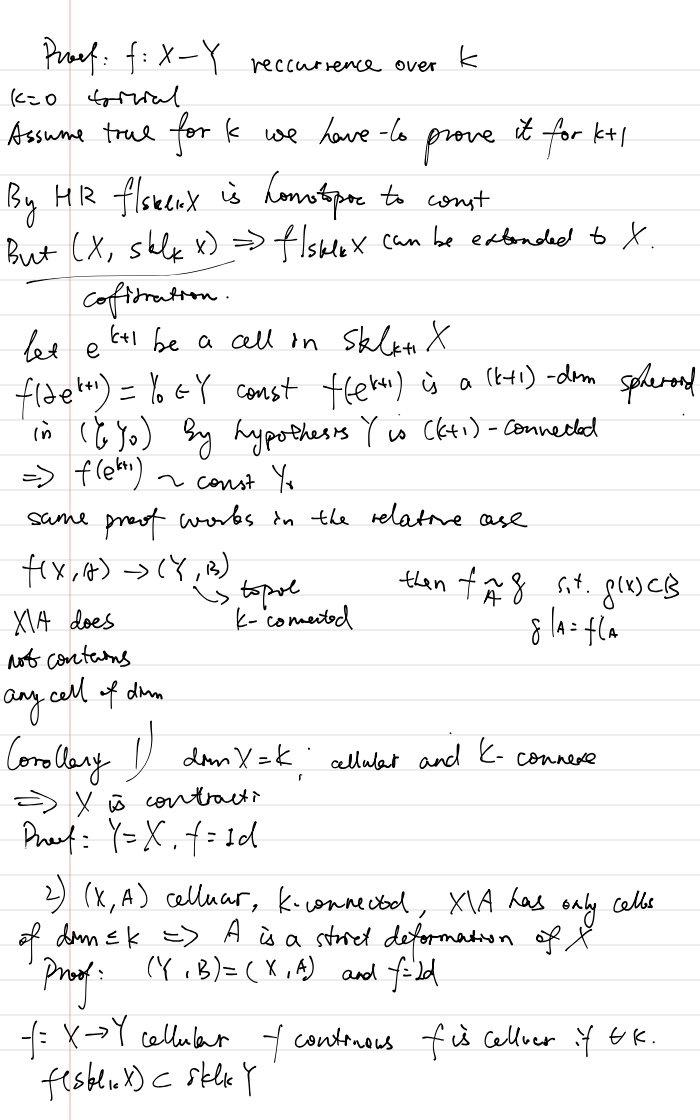 Proof: f: X – Y reccurrence over k
k=0 trivial
Assume true for k we have to prove it for k+1
By HR f|sklₖX is homotopoc to const
But (X, sklₖ X) => f|sklₖX can be extended to X.
cofibration.
let e^{k+1} be a cell in Skl_{k+1} X
f(∂e^{k+1}) = Y₀ ∈ Y const f(e^{k+1}) is a (k+1)-dim spheroid
in (Y, y₀) By hypothesis Y is (k+1)-connected
=> f(e^{k+1}) ~ const
same proof works in the relative case
f(X,A) → (Y,B) then f ~_A g s.t. g(X)⊂B
↳ topol
X\A does k-connected g|A = f|A
not contains
any cell of dim
Corollary 1) dim X = k, cellular and k-connexe
=> X is contracti
Proof: Y=X, f=Id
2) (X,A) celluar, k-connected, X\A has only cells
of dim ≤ k => A is a strict deformation of X
Proof: (Y,B)=(X,A) and f=Id
f: X→Y cellular f continous f is celluer if ∀k.
f(sklₖX) ⊂ sklₖ Y